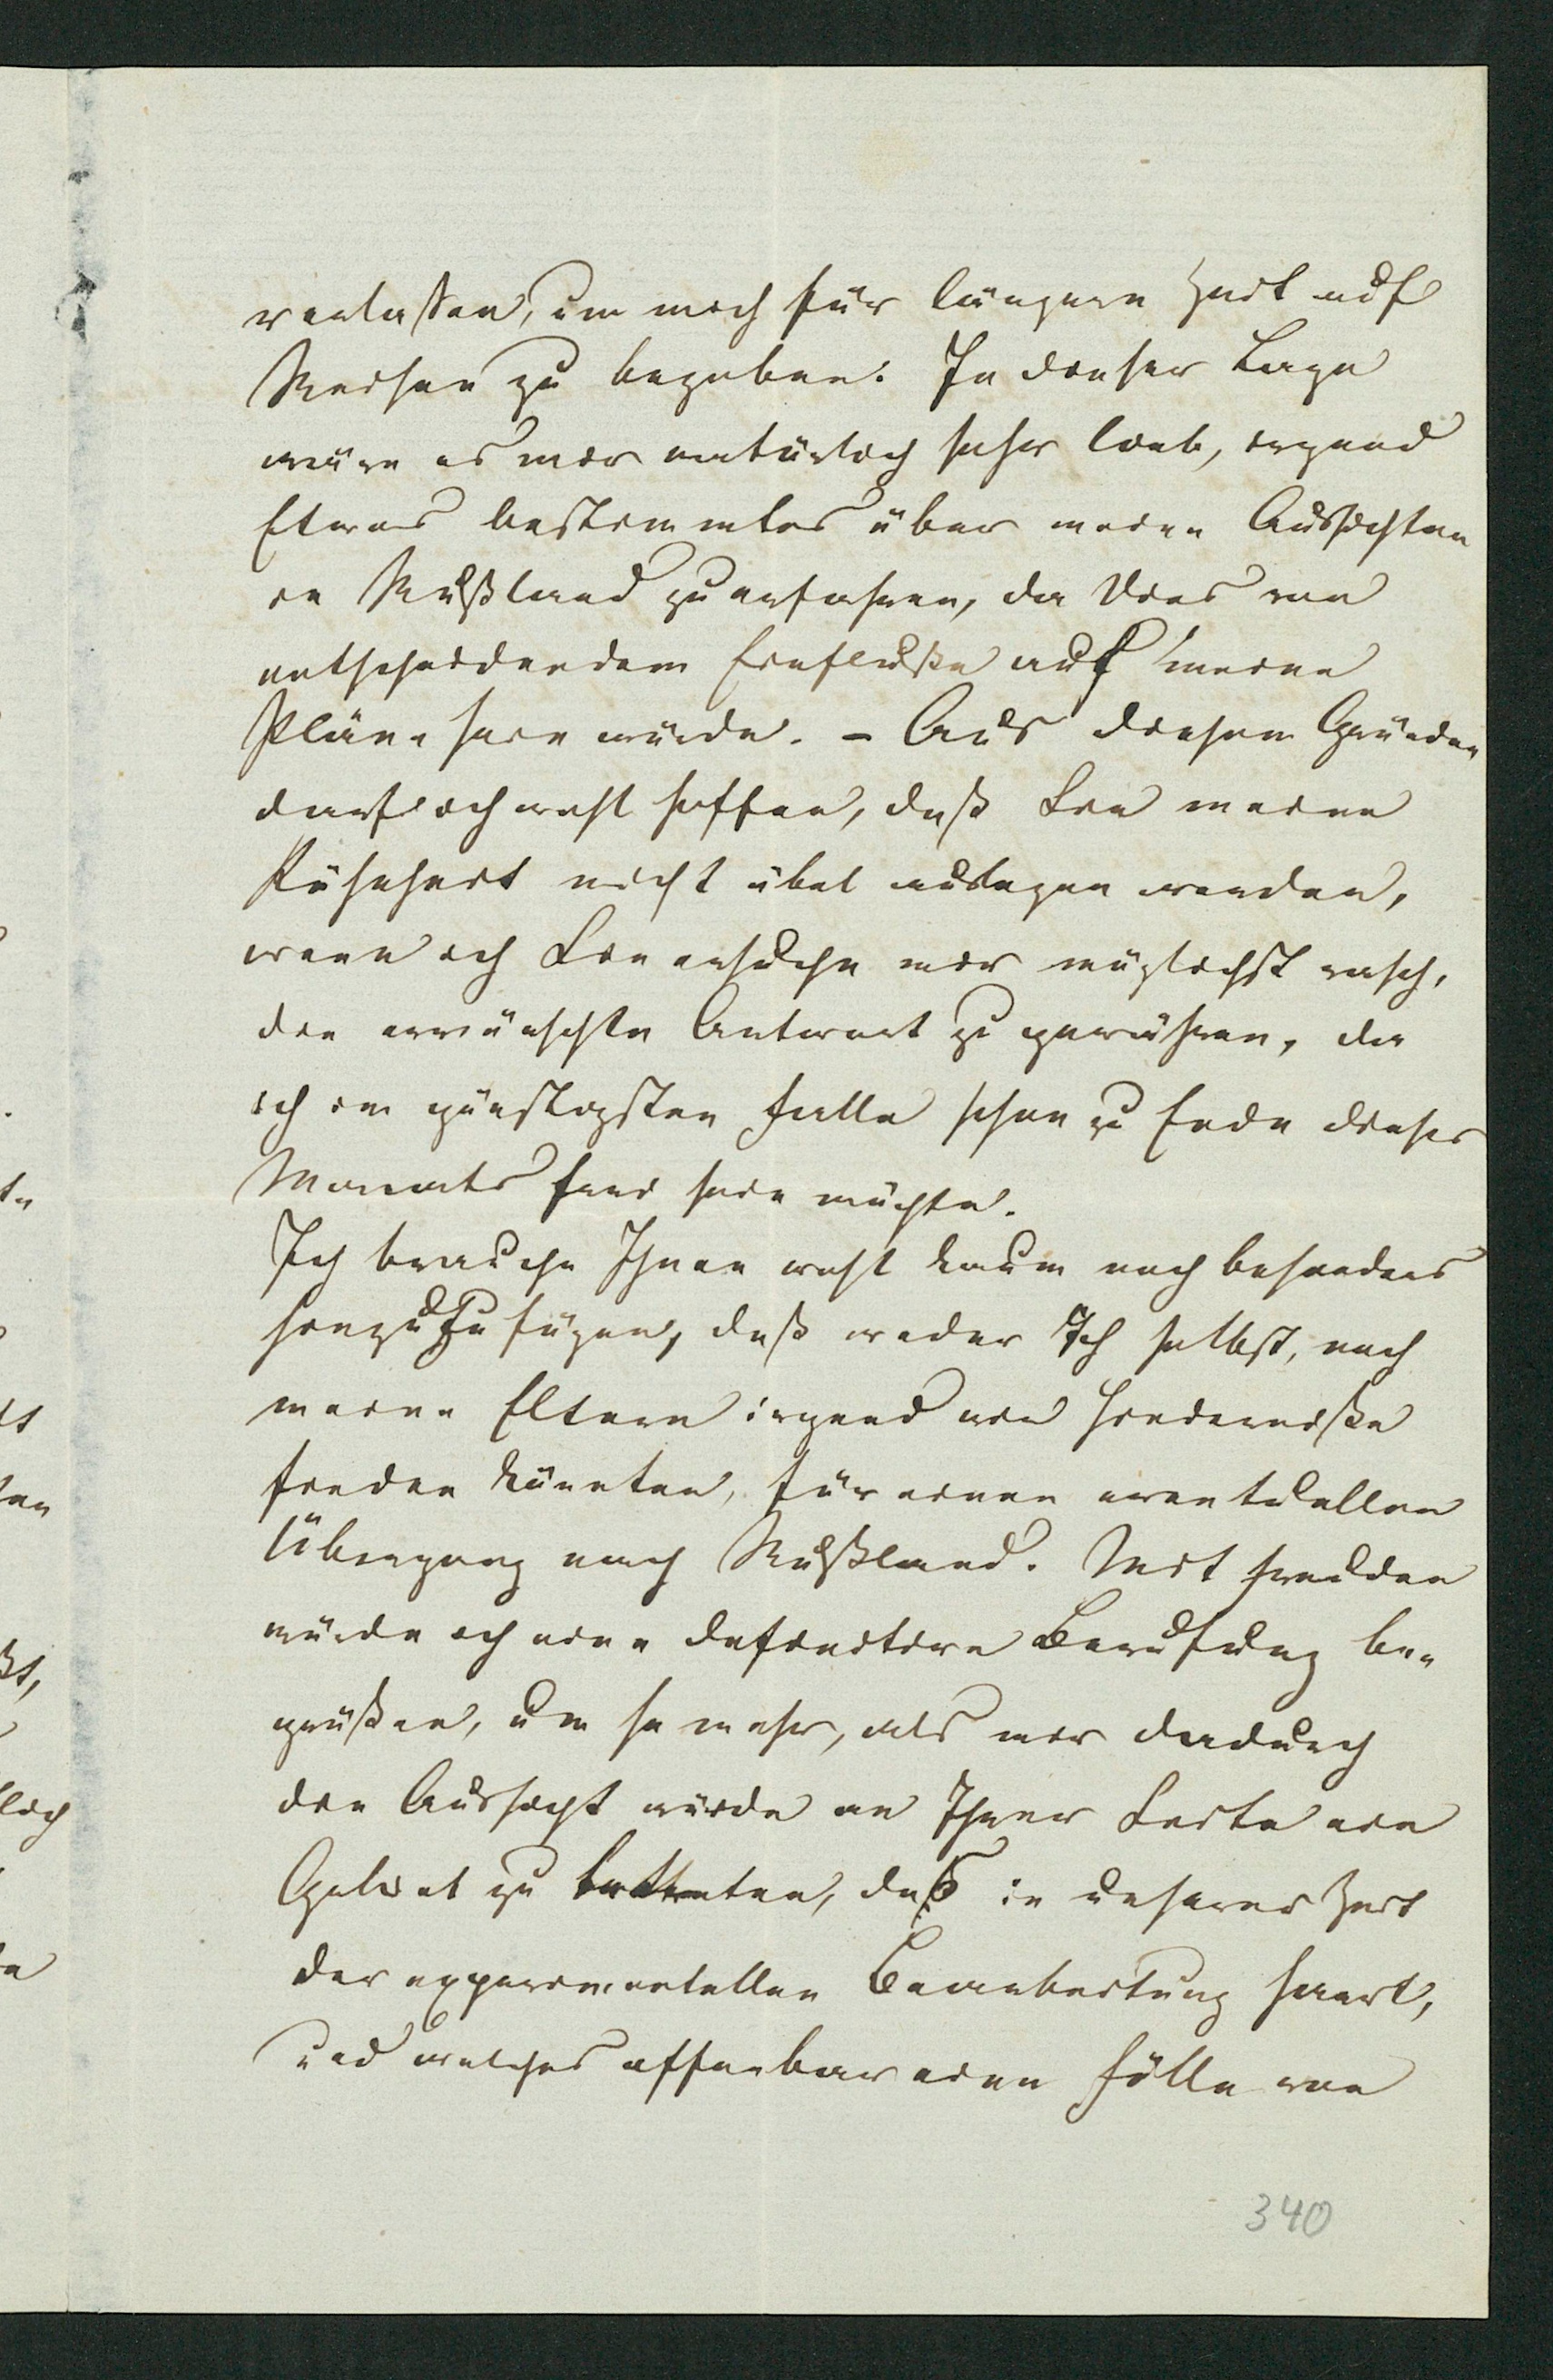 verlassen, um mich für längere Zeit auf
Reisen zu begeben. In dieser Lage
wäre es mir natürlich sehr lieb, irgend
Etwas bestimmtes über meine Aussichten
in Rußland zu erfahren, da Dies von
entscheidendem Einfluße auf meine
Pläne sein würde. – Aus diesem Gründen
darf ich wohl hoffen, daß Sie meine
Kühnheit nicht übel auslegen werden,
wenn ich Sie ersuche mir möglichst rasch,
die erwünschte Antwort zu gewähren, da
ich im günstigsten Falle schon zu Ende dieses
Monats frei sein möchte.
Ich brauche Ihnen wohl kaum noch besonders
hinzuzufügen, daß weder Ich selbst, noch
meine Eltern irgend wie Hinderniße
finden könnten, für einen eventuellen
Übergang nach Rußland. Mit Freuden
würde ich eine definitive Berufung be-
grüßen, um so mehr, als mir dadurch
die Aussicht würde an Ihrer Seite ein
Gebiet zu betreten, das in unserer Zeit
der experimentellen Bearbeitung harrt,
und welches offenbar eine Fülle von
340